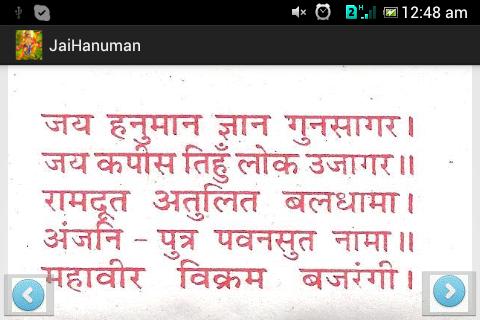 12:48 am
JaiHanuman
जय हनुमान ज्ञान गुनसागर।
जय कपीस तिहुँ लोक उजागर॥
रामदूत अतुलित बलधामा।
अंजनि - पुत्र पवनसुत नामा॥
महावीर विक्रम बजरंगी।